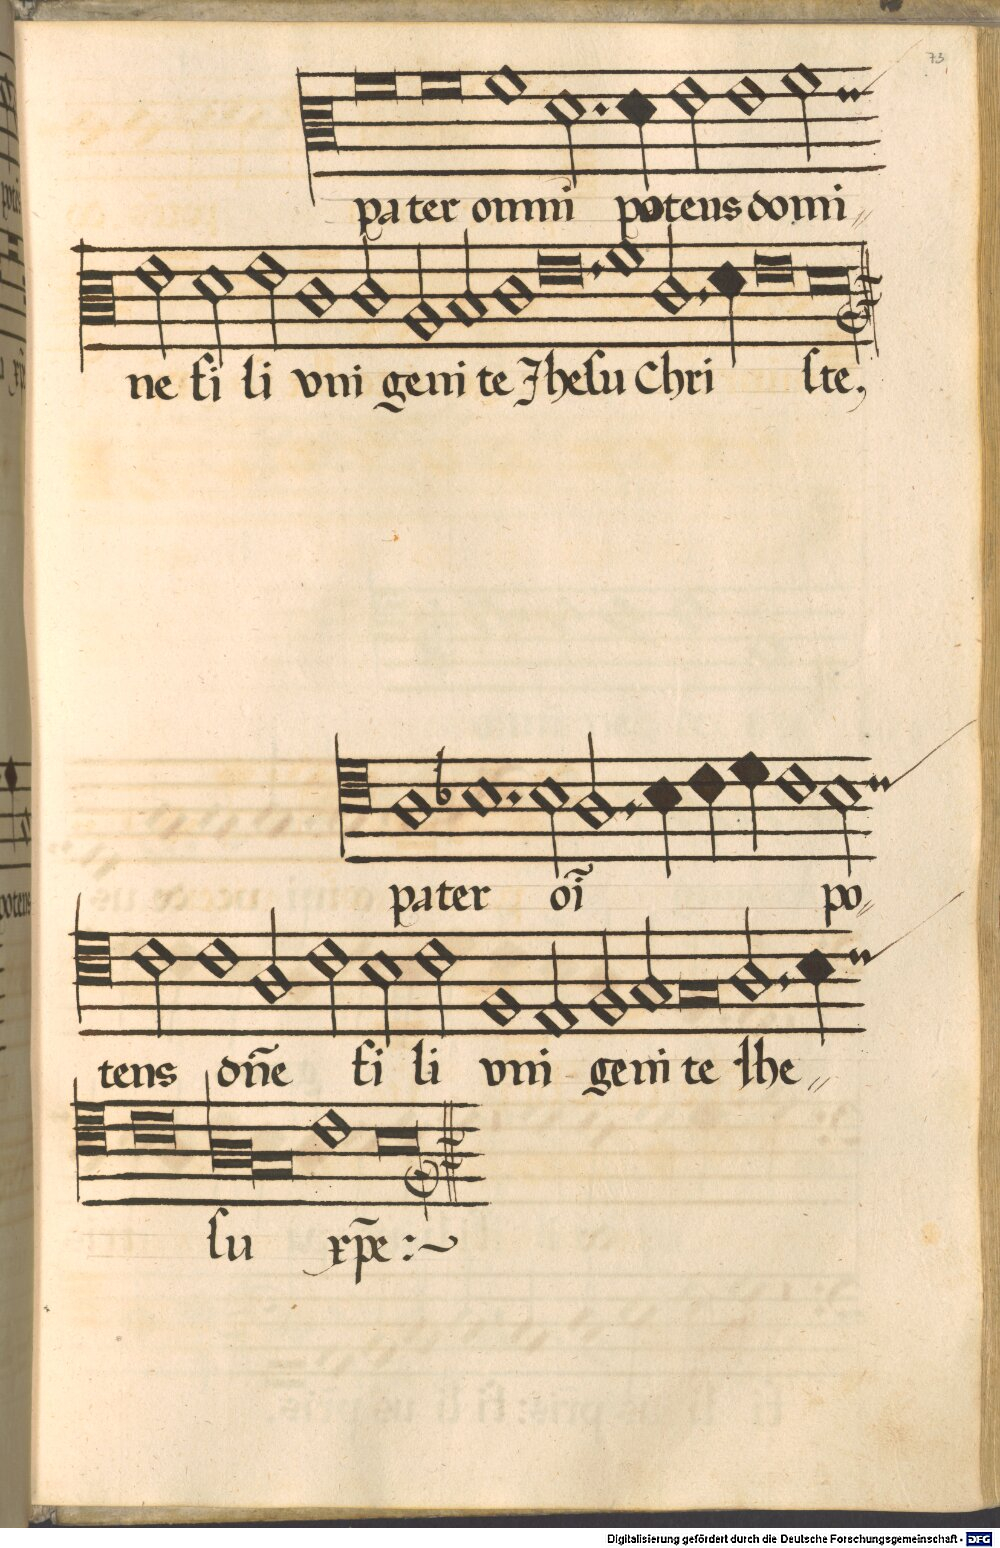 73
pater omni potens domi〃
ne fi li vni geni te Jhesu Chri ste,
pater oī po〃
tens dn̄e fi li vni geni te Jhe〃
su xp̄e :~
Digitalisierung gefördert durch die Deutsche Forschungsgemeinschaft - DFG